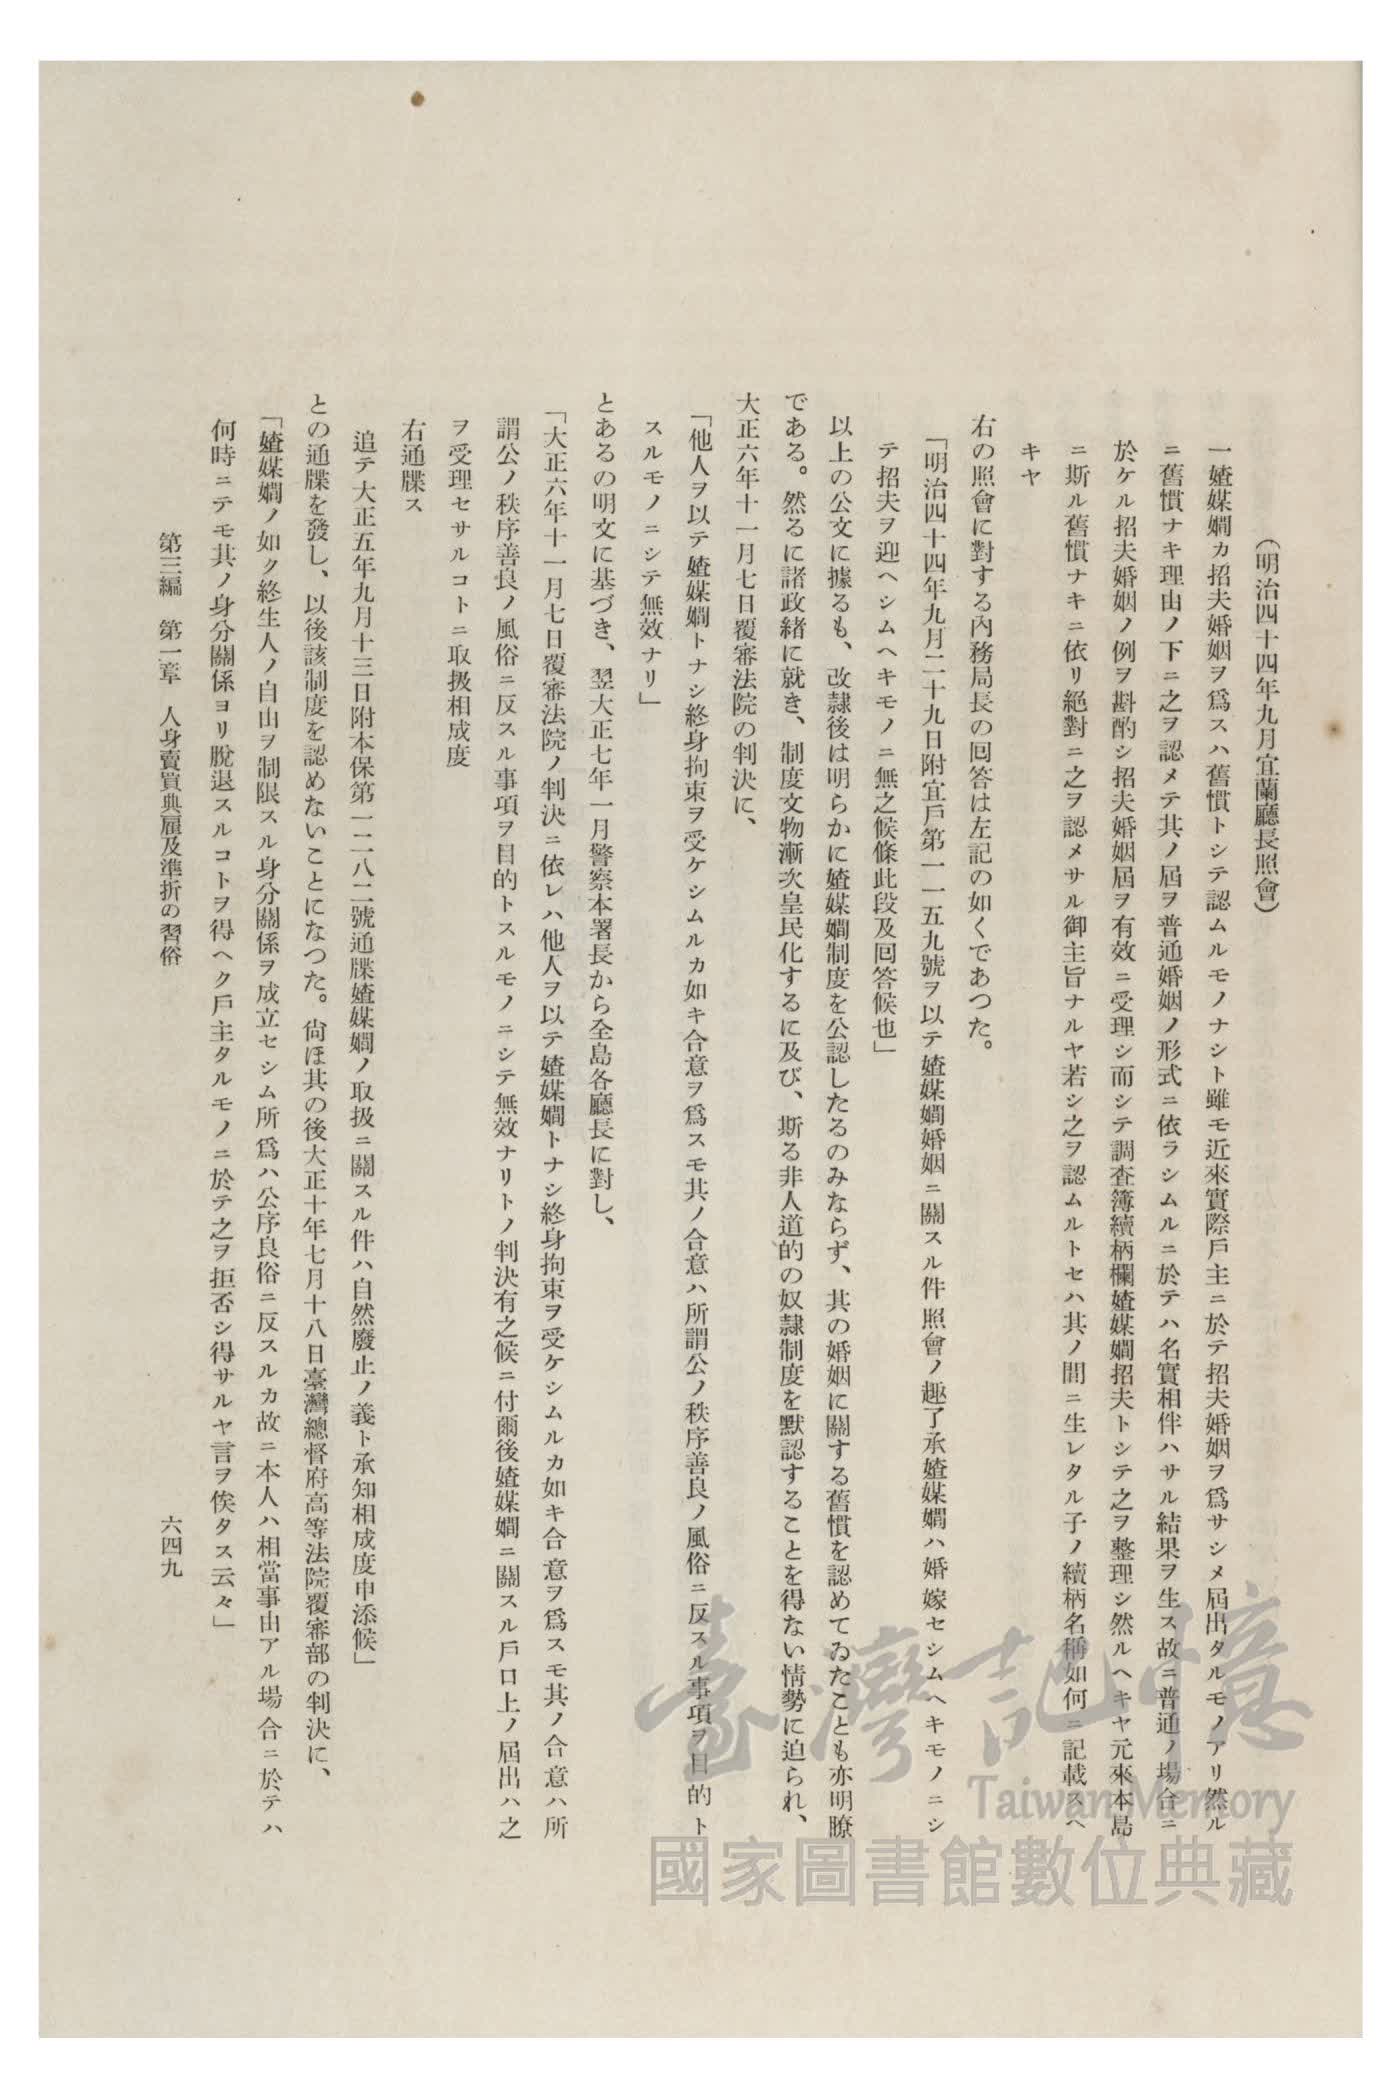 (明治四十四年九月宜蘭廳長照會)
一媎媒嫺カ招夫婚姻ヲ爲スハ舊慣トシテ認ムルモノナシト雖モ近來實際戶主ニ於テ招夫婚姻ヲ爲サシメ屆出タルモノアリ然ル
ニ舊慣ナキ理由ノ下ニ之ヲ認メテ其ノ屆ヲ普通婚姻ノ形式ニ依ラシムルニ於テハ名實相伴ハサル結果ヲ生ス故ニ普通ノ場合ニ
於ケル招夫婚姻ノ例ヲ斟酌シ招夫婚姻屆ヲ有效ニ受理シ而シテ調查簿續柄欄媎媒嫺招夫トシテ之ヲ整理シ然ルヘキヤ元來本島
ニ斯ル舊慣ナキニ依リ絕對ニ之ヲ認メサル御主旨ナルヤ若シ之ヲ認ムルトセハ其ノ間ニ生レタル子ノ續柄名稱如何ニ記載スヘ
キヤ
右の照會に對する內務局長の回答は左記の如くであつた。
「明治四十四年九月二十九日附宜戶第一一五九號ヲ以テ媎媒嫺婚姻ニ關スル件照會ノ趣了承媎媒嫺ハ婚嫁セシムヘキモノニシ
テ招夫ヲ迎ヘシムヘキモノニ無之候條此段及回答候也」
以上の公文に據るも、改隷後は明らかに媎媒嫺制度を公認したるのみならず、其の婚姻に關する舊慣を認めてゐたことも亦明瞭
である。然るに諸政緒に就き、制度文物漸次皇民化するに及び、斯る非人道的の奴隷制度を默認することを得ない情勢に迫られ、
大正六年十一月七日覆審法院の判決に、
「他人ヲ以テ媎媒嫺トナシ終身拘束ヲ受ケシムルカ如キ合意ヲ爲スモ其ノ合意ハ所謂公ノ秩序善良ノ風俗ニ反スル事項ヲ目的ト
スルモノニシテ無效ナリ」
とあるの明文に基づき、翌大正七年一月警察本署長から全島各廳長に對し、
「大正六年十一月七日覆審法院ノ判決ニ依レハ他人ヲ以テ媎媒嫺トナシ終身拘束ヲ受ケシムルカ如キ合意ヲ爲スモ其ノ合意ハ所
謂公ノ秩序善良ノ風俗ニ反スル事項ヲ目的トスルモノニシテ無效ナリトノ判決有之候ニ付爾後媎媒嫺ニ關スル戶口上ノ屆出ハ之
ヲ受理セサルコトニ取扱相成度
右通牒ス
追テ大正五年九月十三日附本保第一二八二號通牒媎媒嫺ノ取扱ニ關スル件ハ自然廢止ノ義ト承知相成度申添候」
との通牒を發し、以後該制度を認めないことになつた。尙ほ其の後大正十年七月十八日臺灣總督府高等法院覆審部の判決に、
「媎媒嫺ノ如ク終生人ノ自由ヲ制限スル身分關係ヲ成立セシム所爲ハ公序良俗ニ反スルカ故ニ本人ハ相當事由アル場合ニ於テハ
何時ニテモ其ノ身分關係ヨリ脫退スルコトヲ得ヘク戶主タルモノニ於テ之ヲ拒否シ得サルヤ言ヲ俟タス云々」
第三編 第一章 人身賣買典雇及準折の習俗
六四九
臺灣記憶
Taiwan Memory
國家圖書館數位典藏